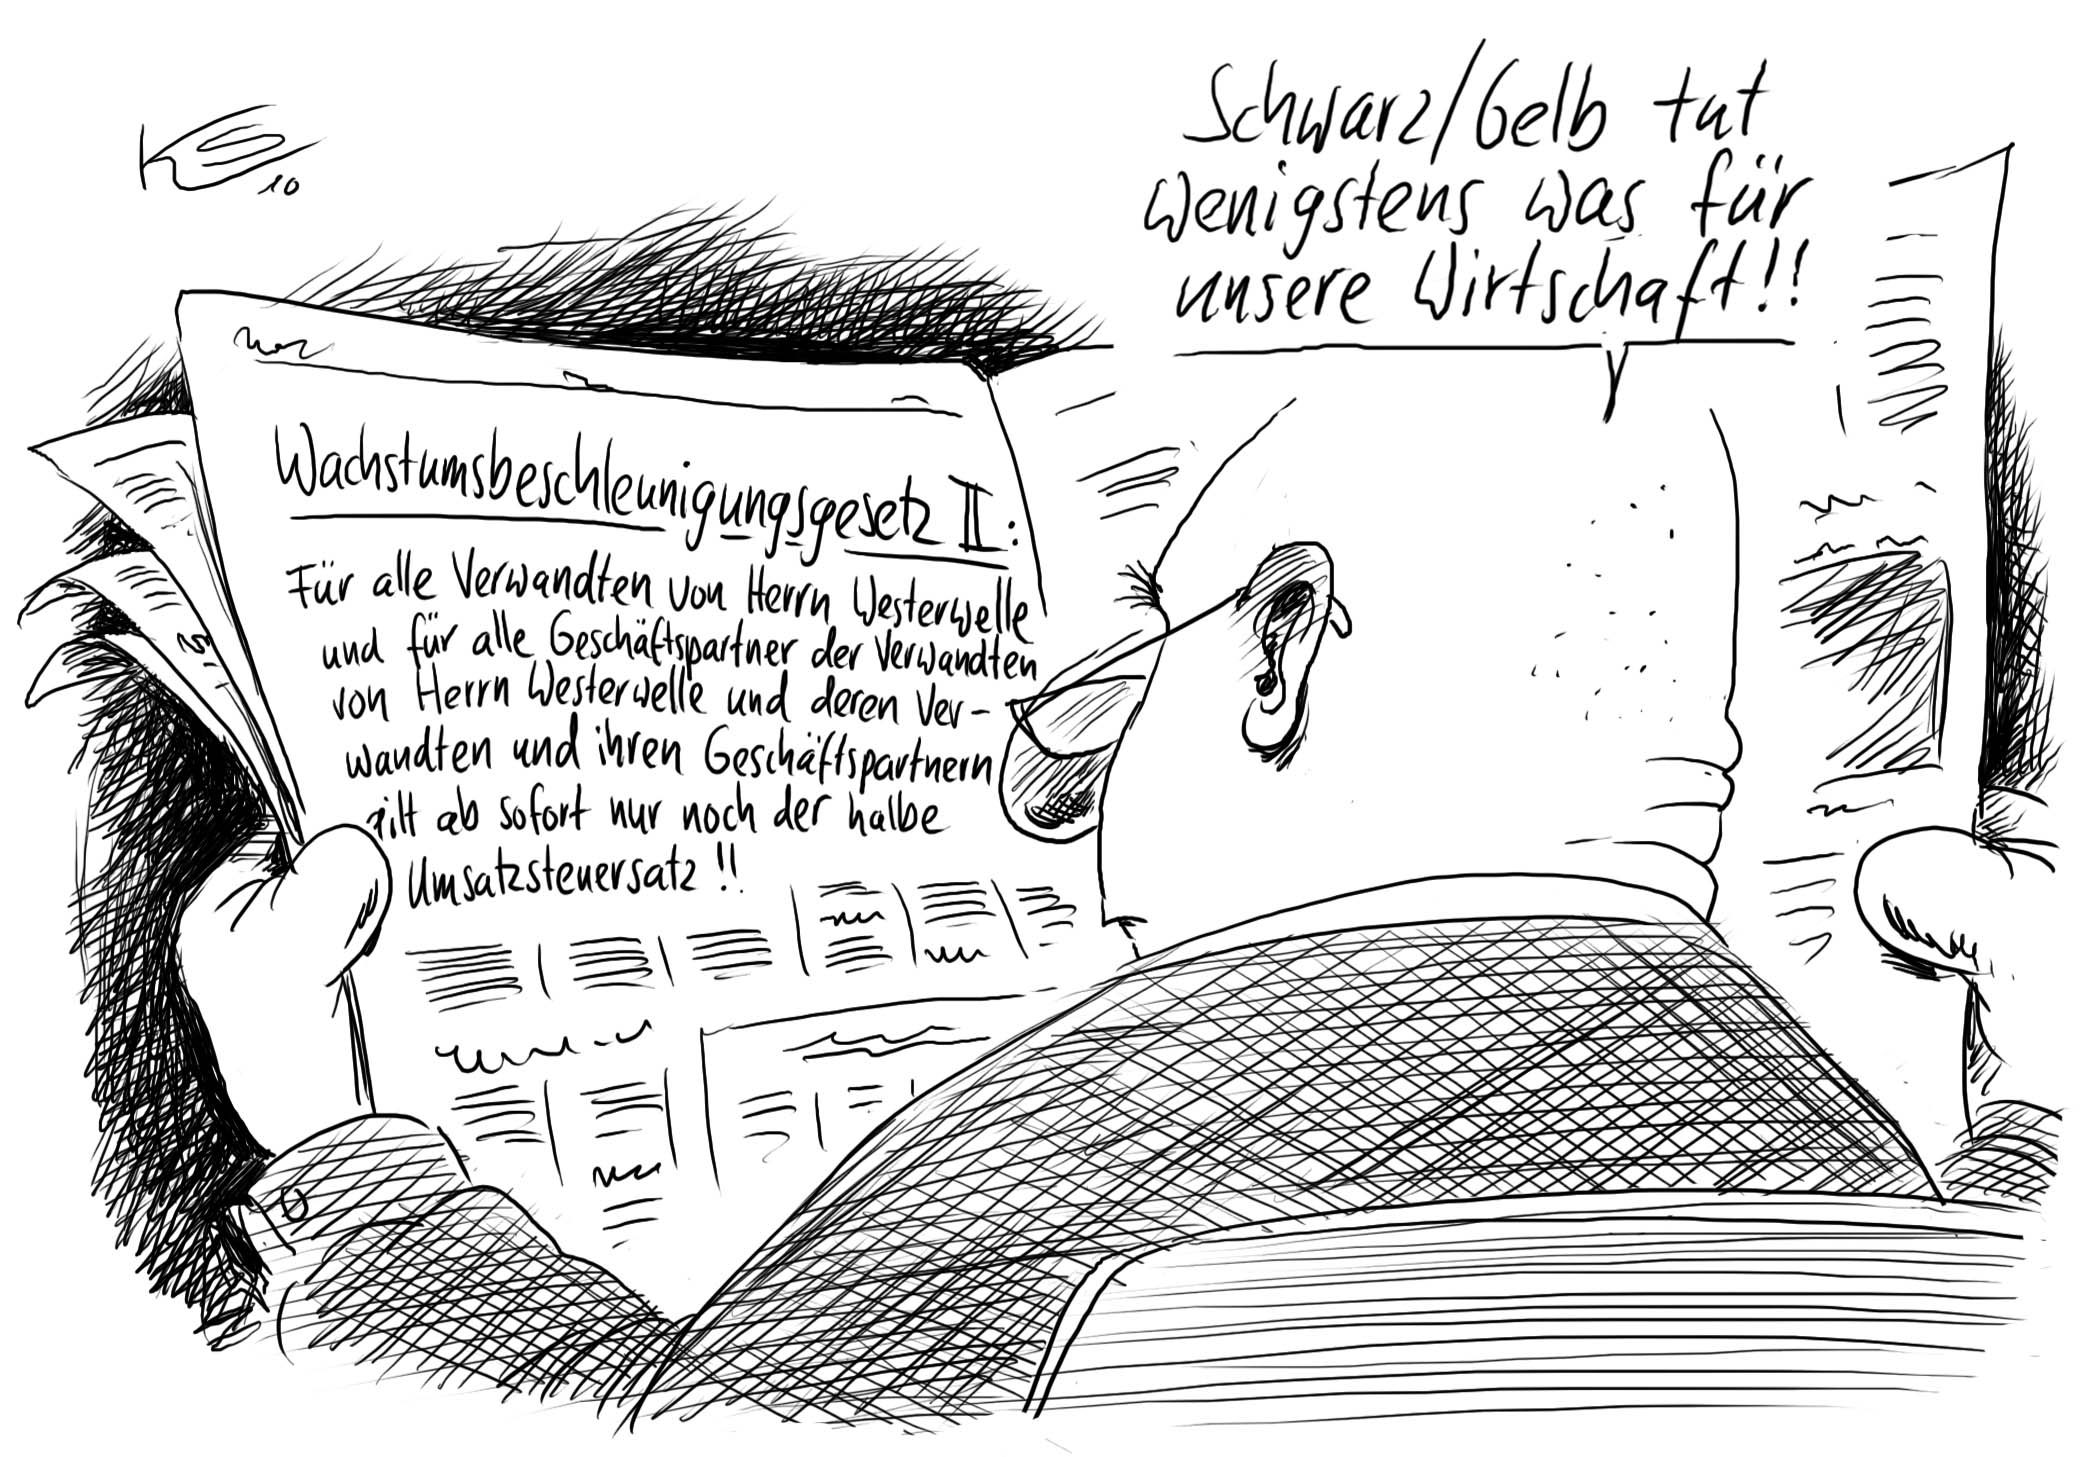 10
Schwarz/Gelb tut
wenigstens was für
unsere Wirtschaft!!
Wachstumsbeschleunigungsgesetz II:
Für alle Verwandten von Herrn Westerwelle
und für alle Geschäftspartner der Verwandten
von Herrn Westerwelle und deren Ver-
wandten und ihren Geschäftspartnern
gilt ab sofort nur noch der halbe
Umsatzsteuersatz!!